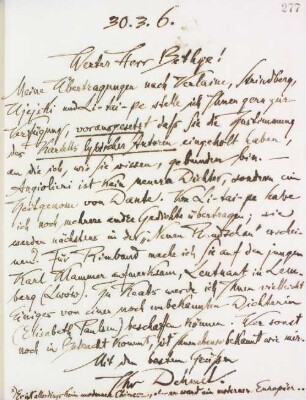 277
30.3.6.
Werter Herr Bethge!
Meine Übertragungen nach Verlaine, Strindberg,
Ujejski und Li-tai-pe stelle ich Ihnen gern zur
Verfügung, vorausgesetzt daß Sie die Zustimmung
des Kartells lyrischer Autoren eingeholt haben,
an die ich, wie Sie wissen, gebunden bin.
Angiolieri ist kein neuerer Dichter, sondern ein
Zeitgenosse von Dante. Von Li-tai-pe habe
ich noch mehrere andre Gedichte übertragen; sie
werden nächstens in der „Neuen Rundschau" erschei-
nen. Für Rimbaud mache ich Sie auf den jungen
Karl Klammer aufmerksam, Leutnant in Lem-
berg (Lwów). Zu Keats werde ich Ihnen vielleicht
Einiges von einer noch unbekannten Dichterin
(Elisabeth) beschaffen können. Wer sonst
noch in Betracht kommt, ist Ihnen besser bekannt wie mir.
Mit den besten Grüßen
Ihr Dehmel.
ist allerdings kein moderner Chinese, aber er ward ein moderner Europäer...